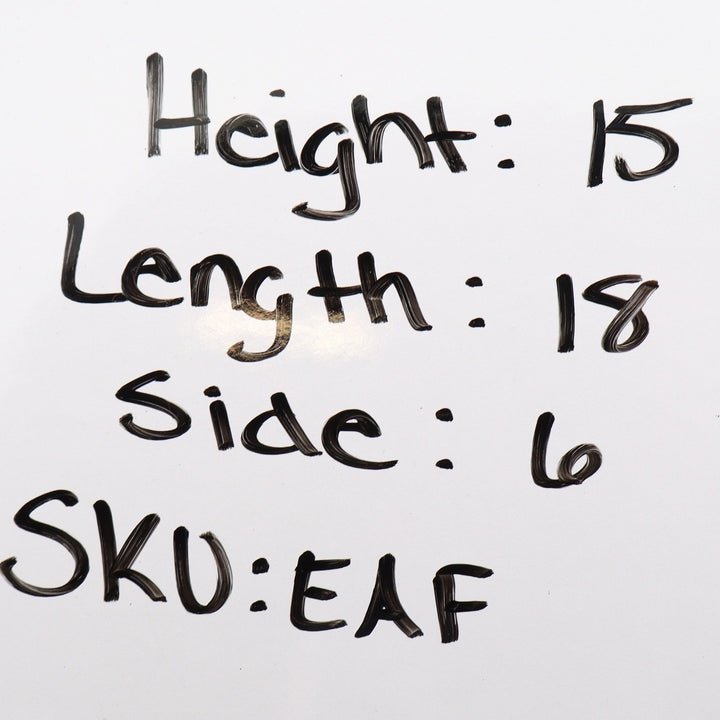 Height: 15
Length: 18
Side: 6
SKU: EAF